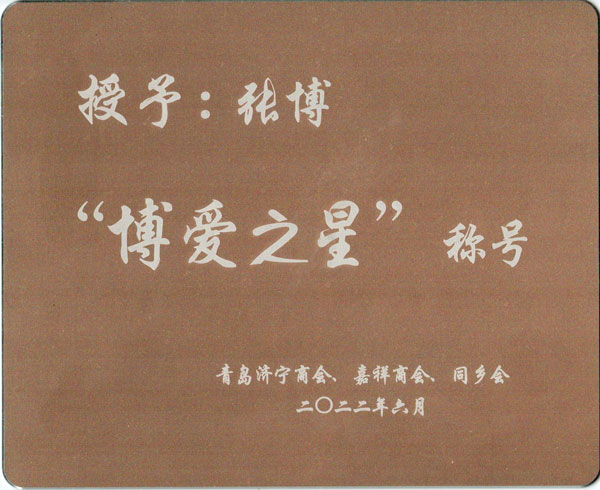 授予：张博
“博爱之星”称号
青岛济宁商会、嘉祥商会、同乡会
二〇二二年六月